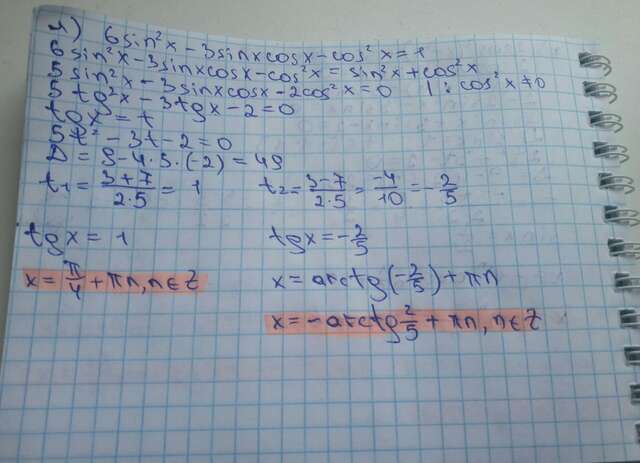 г) 6sin²x - 3sinxcosx - cos²x = 1
6sin²x - 3sinxcosx - cos²x = sin²x + cos²x
5sin²x - 3sinxcosx - 2cos²x = 0 | : cos²x ≠ 0
5tg²x - 3tgx - 2 = 0
tgx = t
5t² - 3t - 2 = 0
D = 9 - 4·5·(-2) = 49
t₁ = (3+7)/(2·5) = 1 t₂ = (3-7)/(2·5) = -4/10 = -2/5
tgx = 1 tgx = -2/5
x = π/4 + πn, n∈Z x = arctg(-2/5) + πn
x = -arctg 2/5 + πn, n∈Z